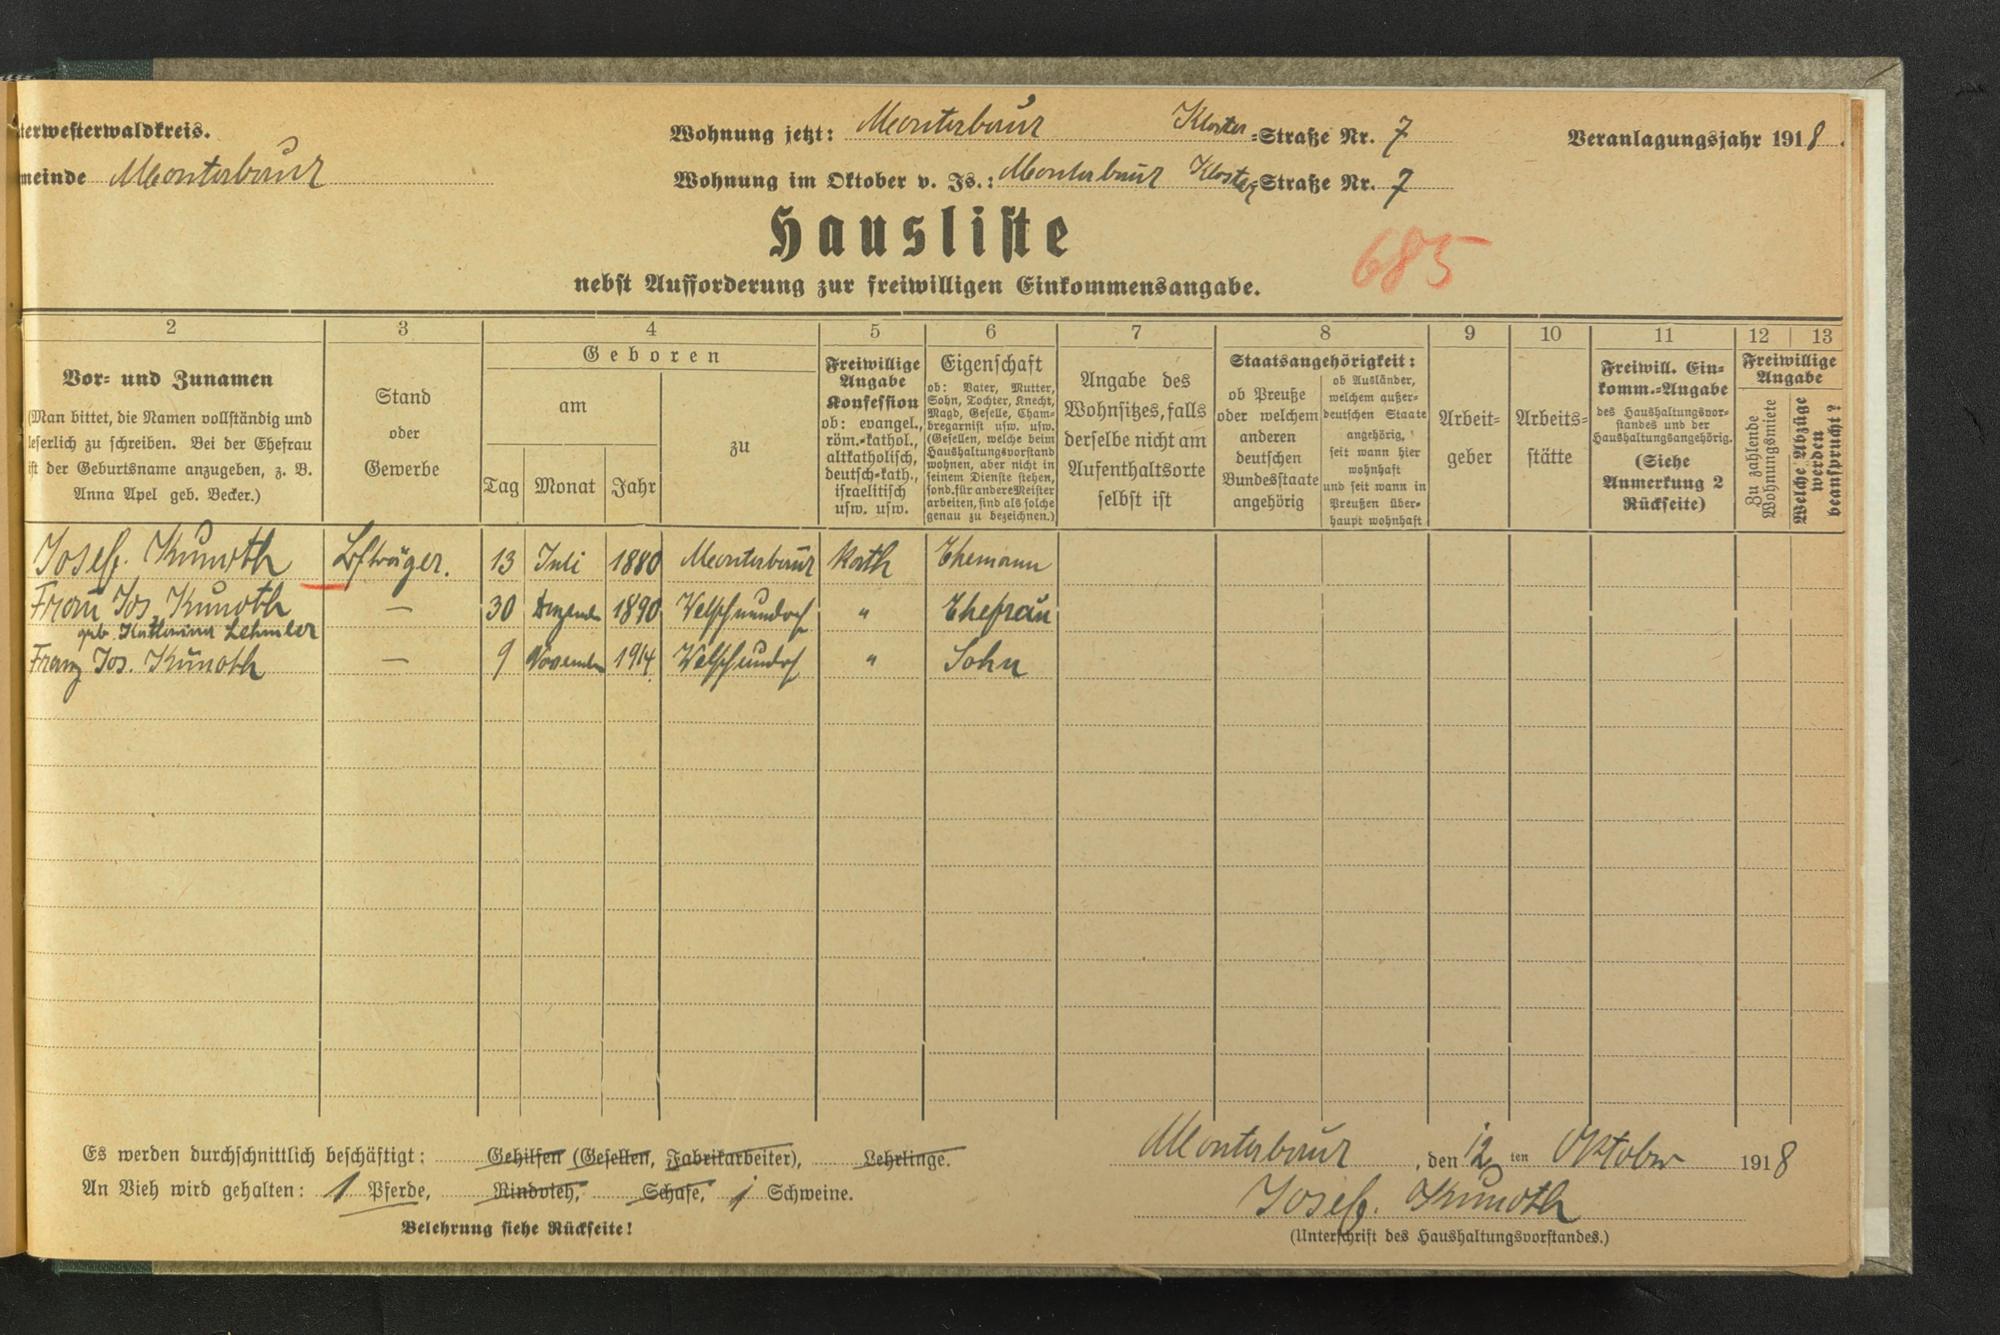 terwesterwaldkreis.
meinde Montabaur
Wohnung jetzt: Montabaur Kloster=Straße Nr. 7
Wohnung im Oktober v. Js.: Montabaur Kloster Straße Nr. 7
Veranlagungsjahr 1918.
Hausliste
685
nebst Aufforderung zur freiwilligen Einkommensangabe.
2 3 4 5 6 7 8 9 10 11 12 13
Vor- und Zunamen
(Man bittet, die Namen vollständig und
leserlich zu schreiben. Bei der Ehefrau
ist der Geburtsname anzugeben, z. B.
Anna Apel geb. Becker.)
Stand
oder
Gewerbe
Geboren
am
Tag Monat Jahr
zu
Freiwillige
Angabe
Konfession
ob: evangel.,
röm.-kathol.,
altkatholisch,
deutsch-kath.,
israelitisch
usw. usw.
Eigenschaft
ob: Vater, Mutter,
Sohn, Tochter, Knecht,
Magd, Geselle, Cham-
bregarnist usw. usw.
(Gesellen, welche beim
Haushaltungsvorstand
wohnen, aber nicht in
seinem Dienste stehen,
sond. für andere Meister
arbeiten, sind als solche
genau zu bezeichnen.)
Angabe des
Wohnsitzes, falls
derselbe nicht am
Aufenthaltsorte
selbst ist
Staatsangehörigkeit:
ob Preuße
oder welchem
anderen
deutschen
Bundesstaate
angehörig
ob Ausländer,
welchem außer-
deutschen Staate
angehörig,
seit wann hier
wohnhaft
und seit wann in
Preußen über-
haupt wohnhaft
Arbeit-
geber
Arbeits-
stätte
Freiwill. Ein-
komm.-Angabe
des Haushaltungsvor-
standes und der
Haushaltungsangehörig.
(Siehe
Anmerkung 2
Rückseite)
Freiwillige
Angabe
Zu zahlende
Wohnungsmiete
Welche Abzüge
werden
beansprucht?
Josef. Kunoth 13 Juli 1880 Montabaur Kath Ehemann
Frau Jos. Kunoth — 30 Dezember 1890 " Ehefrau
geb. Katharina
Franz Jos. Kunoth — 9 November 1914 " Sohn
Es werden durchschnittlich beschäftigt: Gehilfen (Gesellen, Fabrikarbeiter), Lehrlinge.
An Vieh wird gehalten: 1 Pferde, Rindvieh, Schafe, 1 Schweine.
Belehrung siehe Rückseite!
Montabaur, den 12ten Oktober 1918
Josef. Kunoth
(Unterschrift des Haushaltungsvorstandes.)